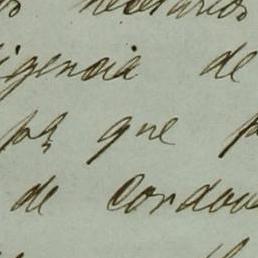 os necesarios
igencia de
pa que p
de Cordov